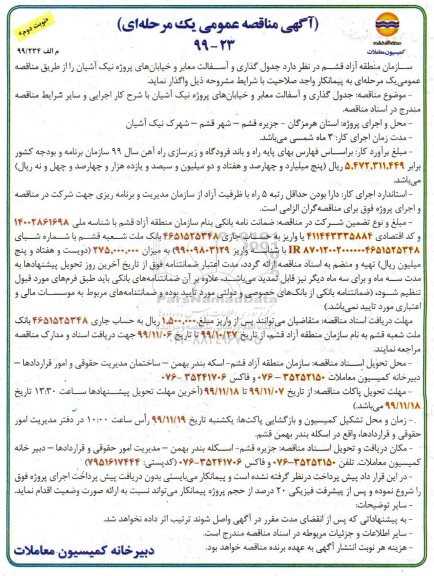 (آگهی مناقصه عمومی یک مرحله‌ای)
۹۹-۲۳
«نوبت دوم»
م الف ۹۹/۲۳۴
کمیسیون معاملات
سـازمان منطقه آزاد قشـم در نظر دارد جدول گذاری و آسـفالت معابر و خیابان‌های پروژه نیک آشیان را از طریق مناقصه
عمومی‌یک مرحله‌ای به پیمانکار واجد صلاحیت با شرایط مشروحه ذیل واگذار نماید.
- موضوع مناقصه: جدول گذاری و آسفالت معابر و خیابان‌های پروژه نیک آشیان با شرح کار اجرایی و سایر شرایط مناقصه
مندرج در اسناد مناقصه.
- محل و اجرای پروژه: استان هرمزگان - جزیره قشم – شهر قشم – شهرک نیک آشیان
- مدت زمان اجرای کار: ۳ ماه شمسی می‌باشد.
- مبلغ برآورد کار: براساس فهارس بهای پایه راه و باند فرودگاه و زیرسازی راه آهن سال ۹۹ سازمان برنامه و بودجه کشور
برابر ۵,۴۷۲,۳۱۱,۴۴۹ ریال (پنج میلیارد و چهارصد و هفتاد و دو میلیون و سیصد و یازده هزار و چهارصد و چهل و نه ریال)
می‌باشد.
- استاندارد اجرای کار: دارا بودن حداقل رتبه ۵ راه با ظرفیت آزاد از سازمان مدیریت و برنامه ریزی جهت شرکت در مناقصه
و اجرای پروژه فوق برای مناقصه‌گران الزامی است.
- مبلغ و نوع تضمین شـرکت در مناقصه: ضمانت نامه بانکی بنام سازمان منطقه آزاد قشم با شناسه ملی ۱۴۰۰۲۸۶۱۶۹۸
و کد اقتصادی ۴۱۱۴۴۳۳۵۸۸۴ یا واریز به حساب جاری ۴۶۵۱۵۲۵۳۴۸ بانک ملت شـعبه قشـم با شـماره شـبای
میلیون ریال) تهیه و منضم به اسناد مناقصه ارائه گردد، مدت اعتبار ضمانتنامه فوق از تاریخ آخرین روز تحویل پیشنهادها به
مدت سـه ماه و برای سه ماه دیگر نیز قابل تمدید می‌باشـد، علاوه بر آن ضمانتنامه‌های بانکی باید طبق فرم‌های مورد قبول
تنظیم شـود، (ضمانتنامه بانکی از بانک‌های خصوصی و دولتی مورد تایید بوده و ضمانتنامه‌های مربوط به موسسات مالی و
اعتباری مورد تایید نمی‌باشد.)
مهلت دریافت اسناد مناقصه: متقاضیان می‌توانند پس از واریز مبلغ ۱,۵۰۰,۰۰۰ ریال به حساب جاری ۴۶۵۱۵۲۵۳۴۸ بانک
ملت شعبه قشم به نام سازمان منطقه آزاد قشم، از تاریخ ۹۹/۱۰/۲۷ تا تاریخ ۹۹/۱۱/۰۶ جهت دریافت اسناد و مدارک مناقصه
مراجعه نمایند.
- محل تحویل اسـناد مناقصه: سازمان منطقه آزاد قشم- اسکله بندر بهمن – ساختمان مدیریت حقوقی و امور قراردادها –
دبیرخانه کمیسیون معاملات ۳۵۲۵۲۱۵۰-۰۷۶ و فاکس ۳۵۲۴۱۷۰۶-۰۷۶
- مهلت تحویل پاکات مناقصه: از تاریخ ۹۹/۱۱/۰۷ تا ۹۹/۱۱/۱۸ (آخرین مهلت تحویل پیشنهادها ساعت ۱۳:۳۰ تاریخ
۹۹/۱۱/۱۸ می‌باشد.)
- زمان و محل تشکیل کمیسیون و بازگشایی پاکت‌ها: یکشنبه تاریخ ۹۹/۱۱/۱۹ رأس ساعت ۱۰:۰۰ در دفتر مدیریت امور
حقوقی و قراردادها، واقع در اسکله بندر بهمن قشم.
- مکان دریافت و تحویل اسناد مناقصه: جزیره قشم- اسکله بندر بهمن – مدیریت امور حقوقی و قراردادها – دبیر خانه
کمیسیون معاملات. تلفن ۳۵۲۵۲۱۵۰-۰۷۶ و فاکس ۳۵۲۴۱۷۰۶-۰۷۶ (کدپستی: ۷۹۵۱۶۱۷۴۴۴)
- در این قرار داد پیش پرداخت درنظر گرفته نشده است و پیمانکار می‌بایستی بدون دریافت پیش پرداخت اجرای پروژه فوق
را شروع نموده و پس از پیشرفت فیزیکی ۲۰ درصد از حجم پروژه پیمانکار می‌تواند نسبت به ارائه صورت وضعیت اقدام نماید.
- سایر توضیحات:
- به پیشنهاداتی که پس از انقضای مدت مقرر در آگهی واصل شوند ترتیب اثر داده نخواهد شد.
- سایر اطلاعات و جزئیات مربوطه در اسناد مناقصه مندرج است.
- هزینه هر نوبت انتشار آگهی به عهده برنده مناقصه خواهد بود.
دبیرخانه کمیسیون معاملات